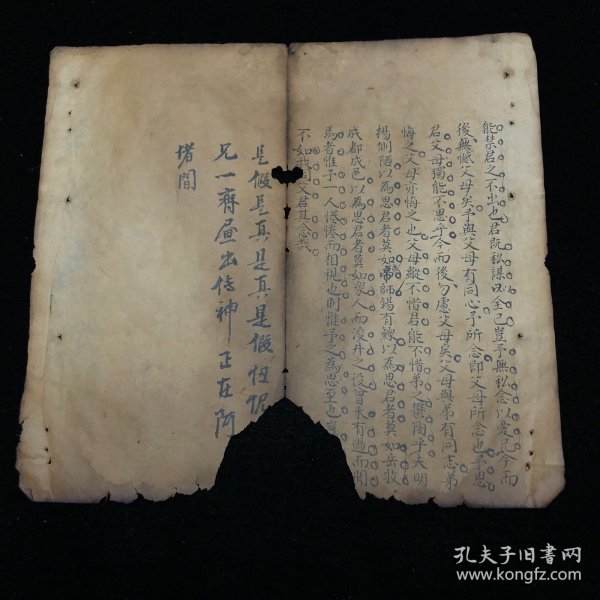 能禁君之不出也君既私謀以全己豈予無私念以愛兄今而
後無憾父母矣予與父母有同心予所念即父母所念也予思
君父母獨能不思乎今而後勿慮父母矣父母與弟有同志弟
悔之父母亦悔之也父母縱不惜君能不惜弟之鬱陶乎夫明
揚側陋以為思君者莫如帝師錫有鰥以為思君者莫如岳牧
成都成邑以為思君者莫如眾人而浚井之役曾未有過而問
焉者惟予一人惓惓而相視也則惟予之為思至也
不如我同父君其念哉
是假是真是真是假恒
兄一齊畫出傳神正在阿
堵間
孔夫子旧书网
www.kongfz.com